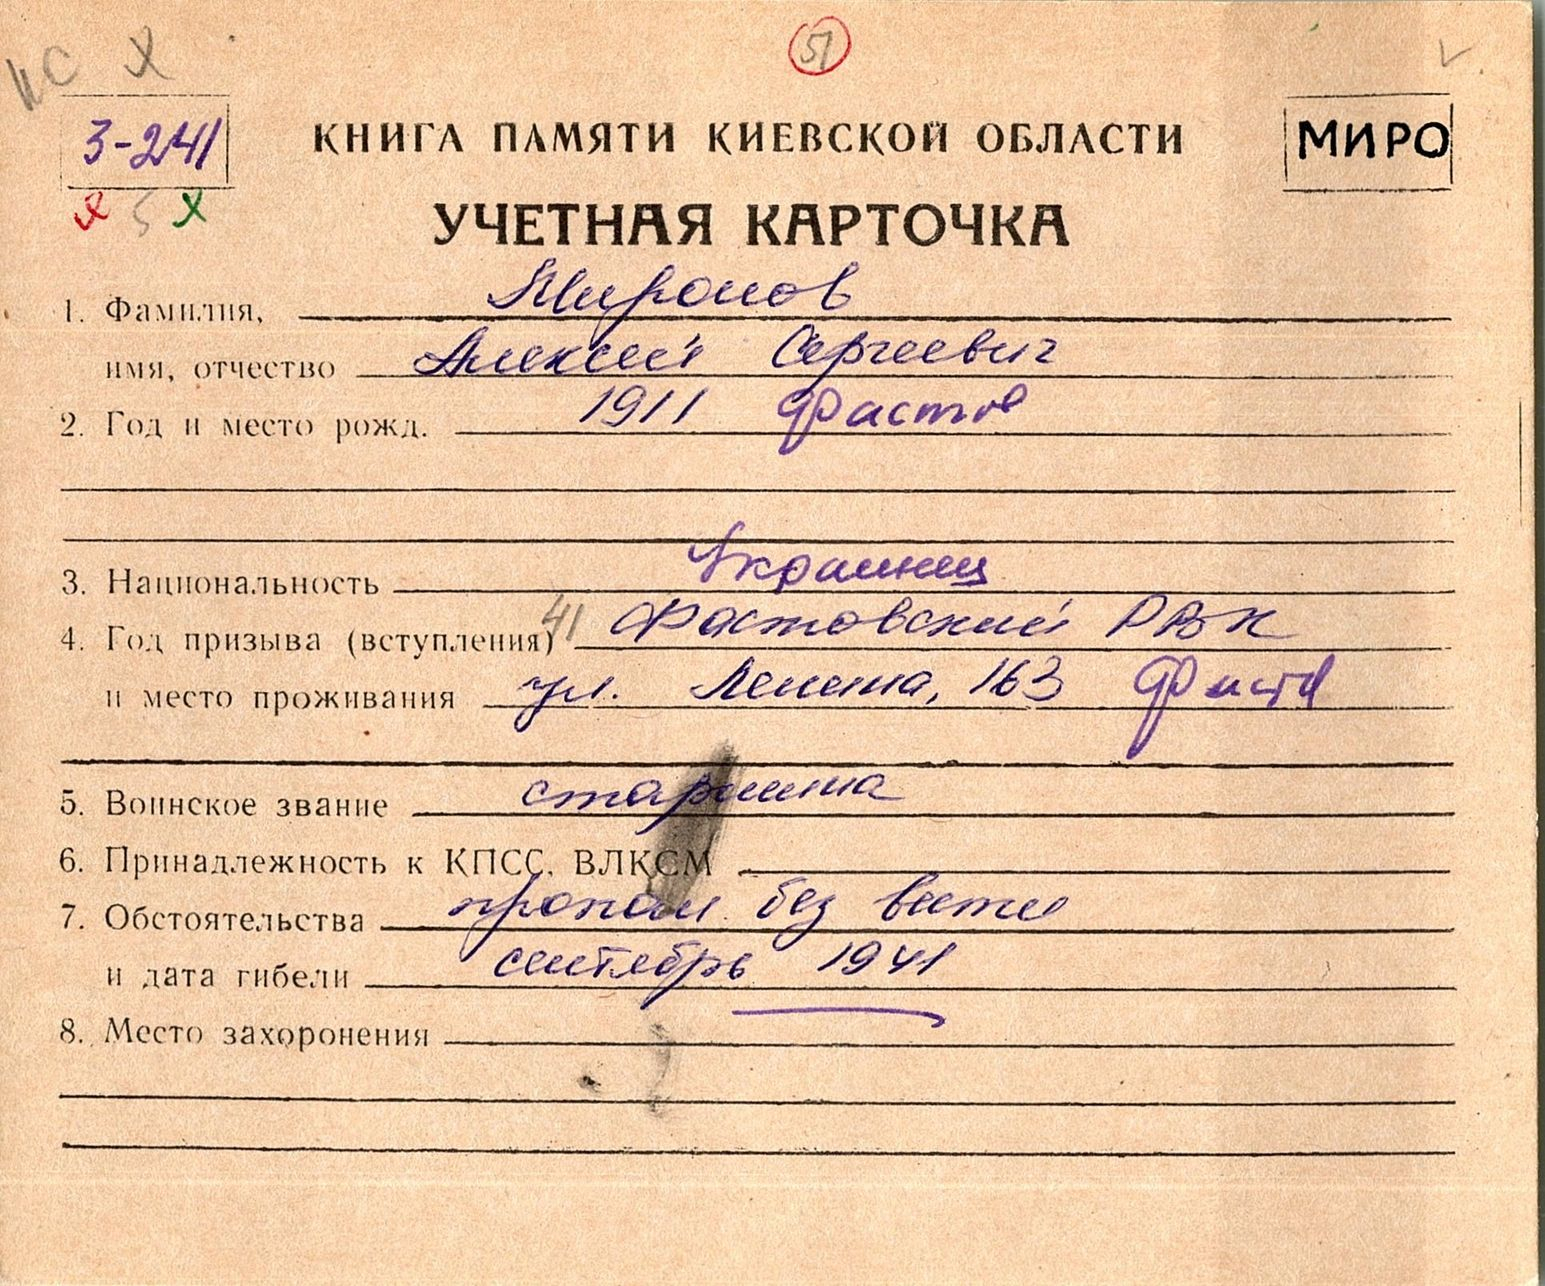 ИС Х
51
3-241
КНИГА ПАМЯТИ КИЕВСКОЙ ОБЛАСТИ
МИРО
х 5 х
УЧЕТНАЯ КАРТОЧКА
1. Фамилия, Миронов
имя, отчество Алексей Сергеевич
2. Год и место рожд. 1911 Фастов
3. Национальность Украинец
4. Год призыва (вступления) 41 Фастовский РВК
и место проживания ул. Ленина, 163 Фастов
5. Воинское звание старшина
6. Принадлежность к КПСС, ВЛКСМ
7. Обстоятельства пропал без вести
и дата гибели сентябрь 1941
8. Место захоронения